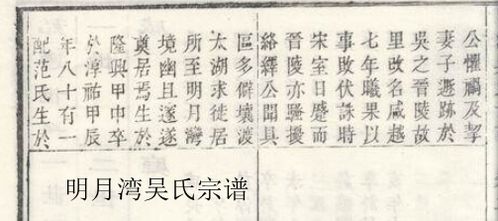 公懼禍及挈
妻子遯跡於
吳之晉陵故
里改名咸越
七年曦果以
事敗伏誅時
宋室日蹙而
晉陵亦騷擾
絡繹公聞具
區多僻壤渡
太湖求徒居
所至明月灣
境幽且邃遂
奠居焉生於
隆興甲申卒
於淳祐甲辰
年八十有一
配范氏生於
明月湾吴氏宗谱